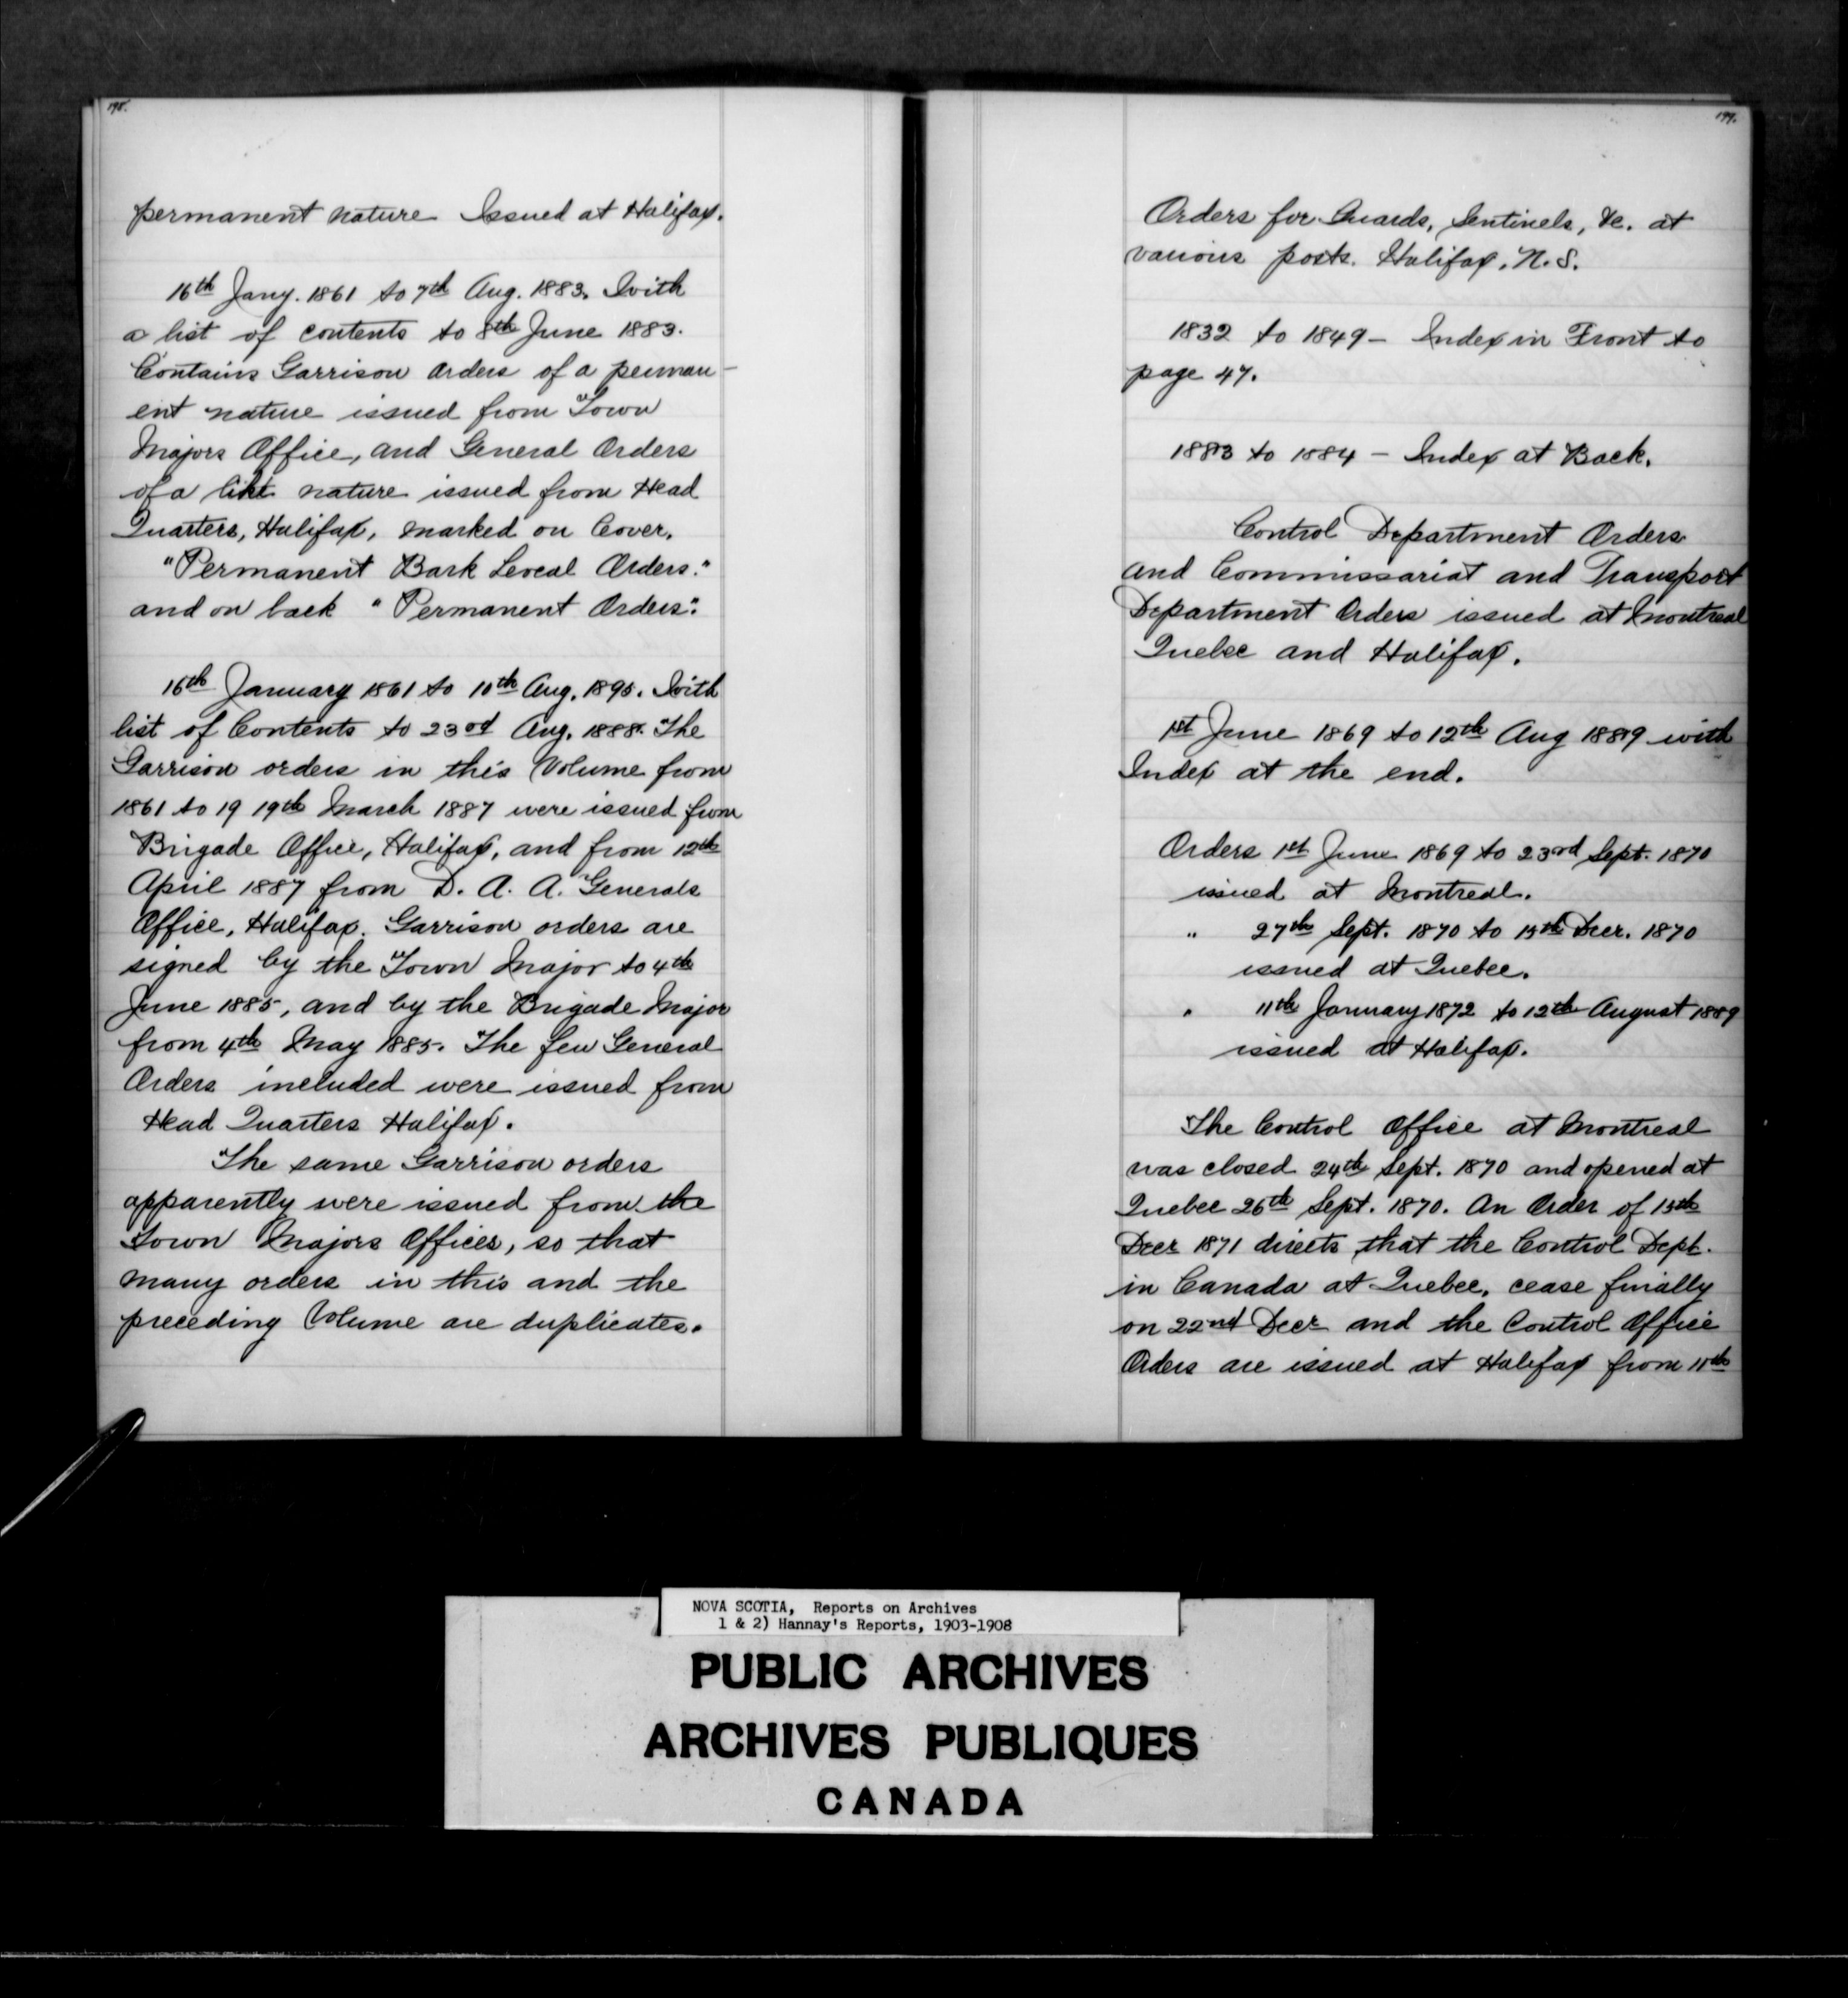 permanent nature Issued at Halifax.
16th Jany. 1861 to 7th Aug. 1883. With
a list of contents to 8th June 1883.
Contains Garrison Orders of a perman-
ent nature issued from Town
Majors Office, and General Orders
of a like nature issued from Head
Quarters, Halifax, marked on Cover.
"Permanent Bark Leveal Orders."
and on back "Permanent Orders".
16th January 1861 to 10th Aug. 1895. With
list of Contents to 23rd Aug. 1888. The
Garrison orders in this Volume from
1861 to 19 19th March 1887 were issued from
Brigade Office, Halifax, and from 12th
April 1887 from D. A. A. Generals
Office, Halifax. Garrison orders are
signed by the Town Major to 4th
June 1885, and by the Brigade Major
from 4th May 1885. The few General
Orders included were issued from
Head Quarters Halifax.
The same Garrison orders
apparently were issued from the
Town Majors Offices, so that
many orders in this and the
preceding Volume are duplicates.
199.
Orders for Guards, Sentinels, &c. at
various posts. Halifax, N. S.
1832 to 1849 - Index in Front to
page 47.
1883 to 1884 - Index at Back.
Control Department Orders
and Commissariat and Transport
Department Orders issued at Montreal
Quebec and Halifax.
1st June 1869 to 12th Aug 1889 with
Index at the end.
Orders 1st June 1869 to 23rd Sept. 1870
issued at Montreal.
" 27th Sept. 1870 to 15th Decr. 1870
issued at Quebec.
" 11th January 1872 to 12th August 1889
issued at Halifax.
The Control Office at Montreal
was closed 24th Sept. 1870 and opened at
Quebec 26th Sept. 1870. An Order of 15th
Decr 1871 directs that the Control Dept.
in Canada at Quebec, cease finally
on 22nd Decr and the Control Office
Orders are issued at Halifax from 11th
NOVA SCOTIA, Reports on Archives
1 & 2) Hannay's Reports, 1903-1908
PUBLIC ARCHIVES
ARCHIVES PUBLIQUES
CANADA